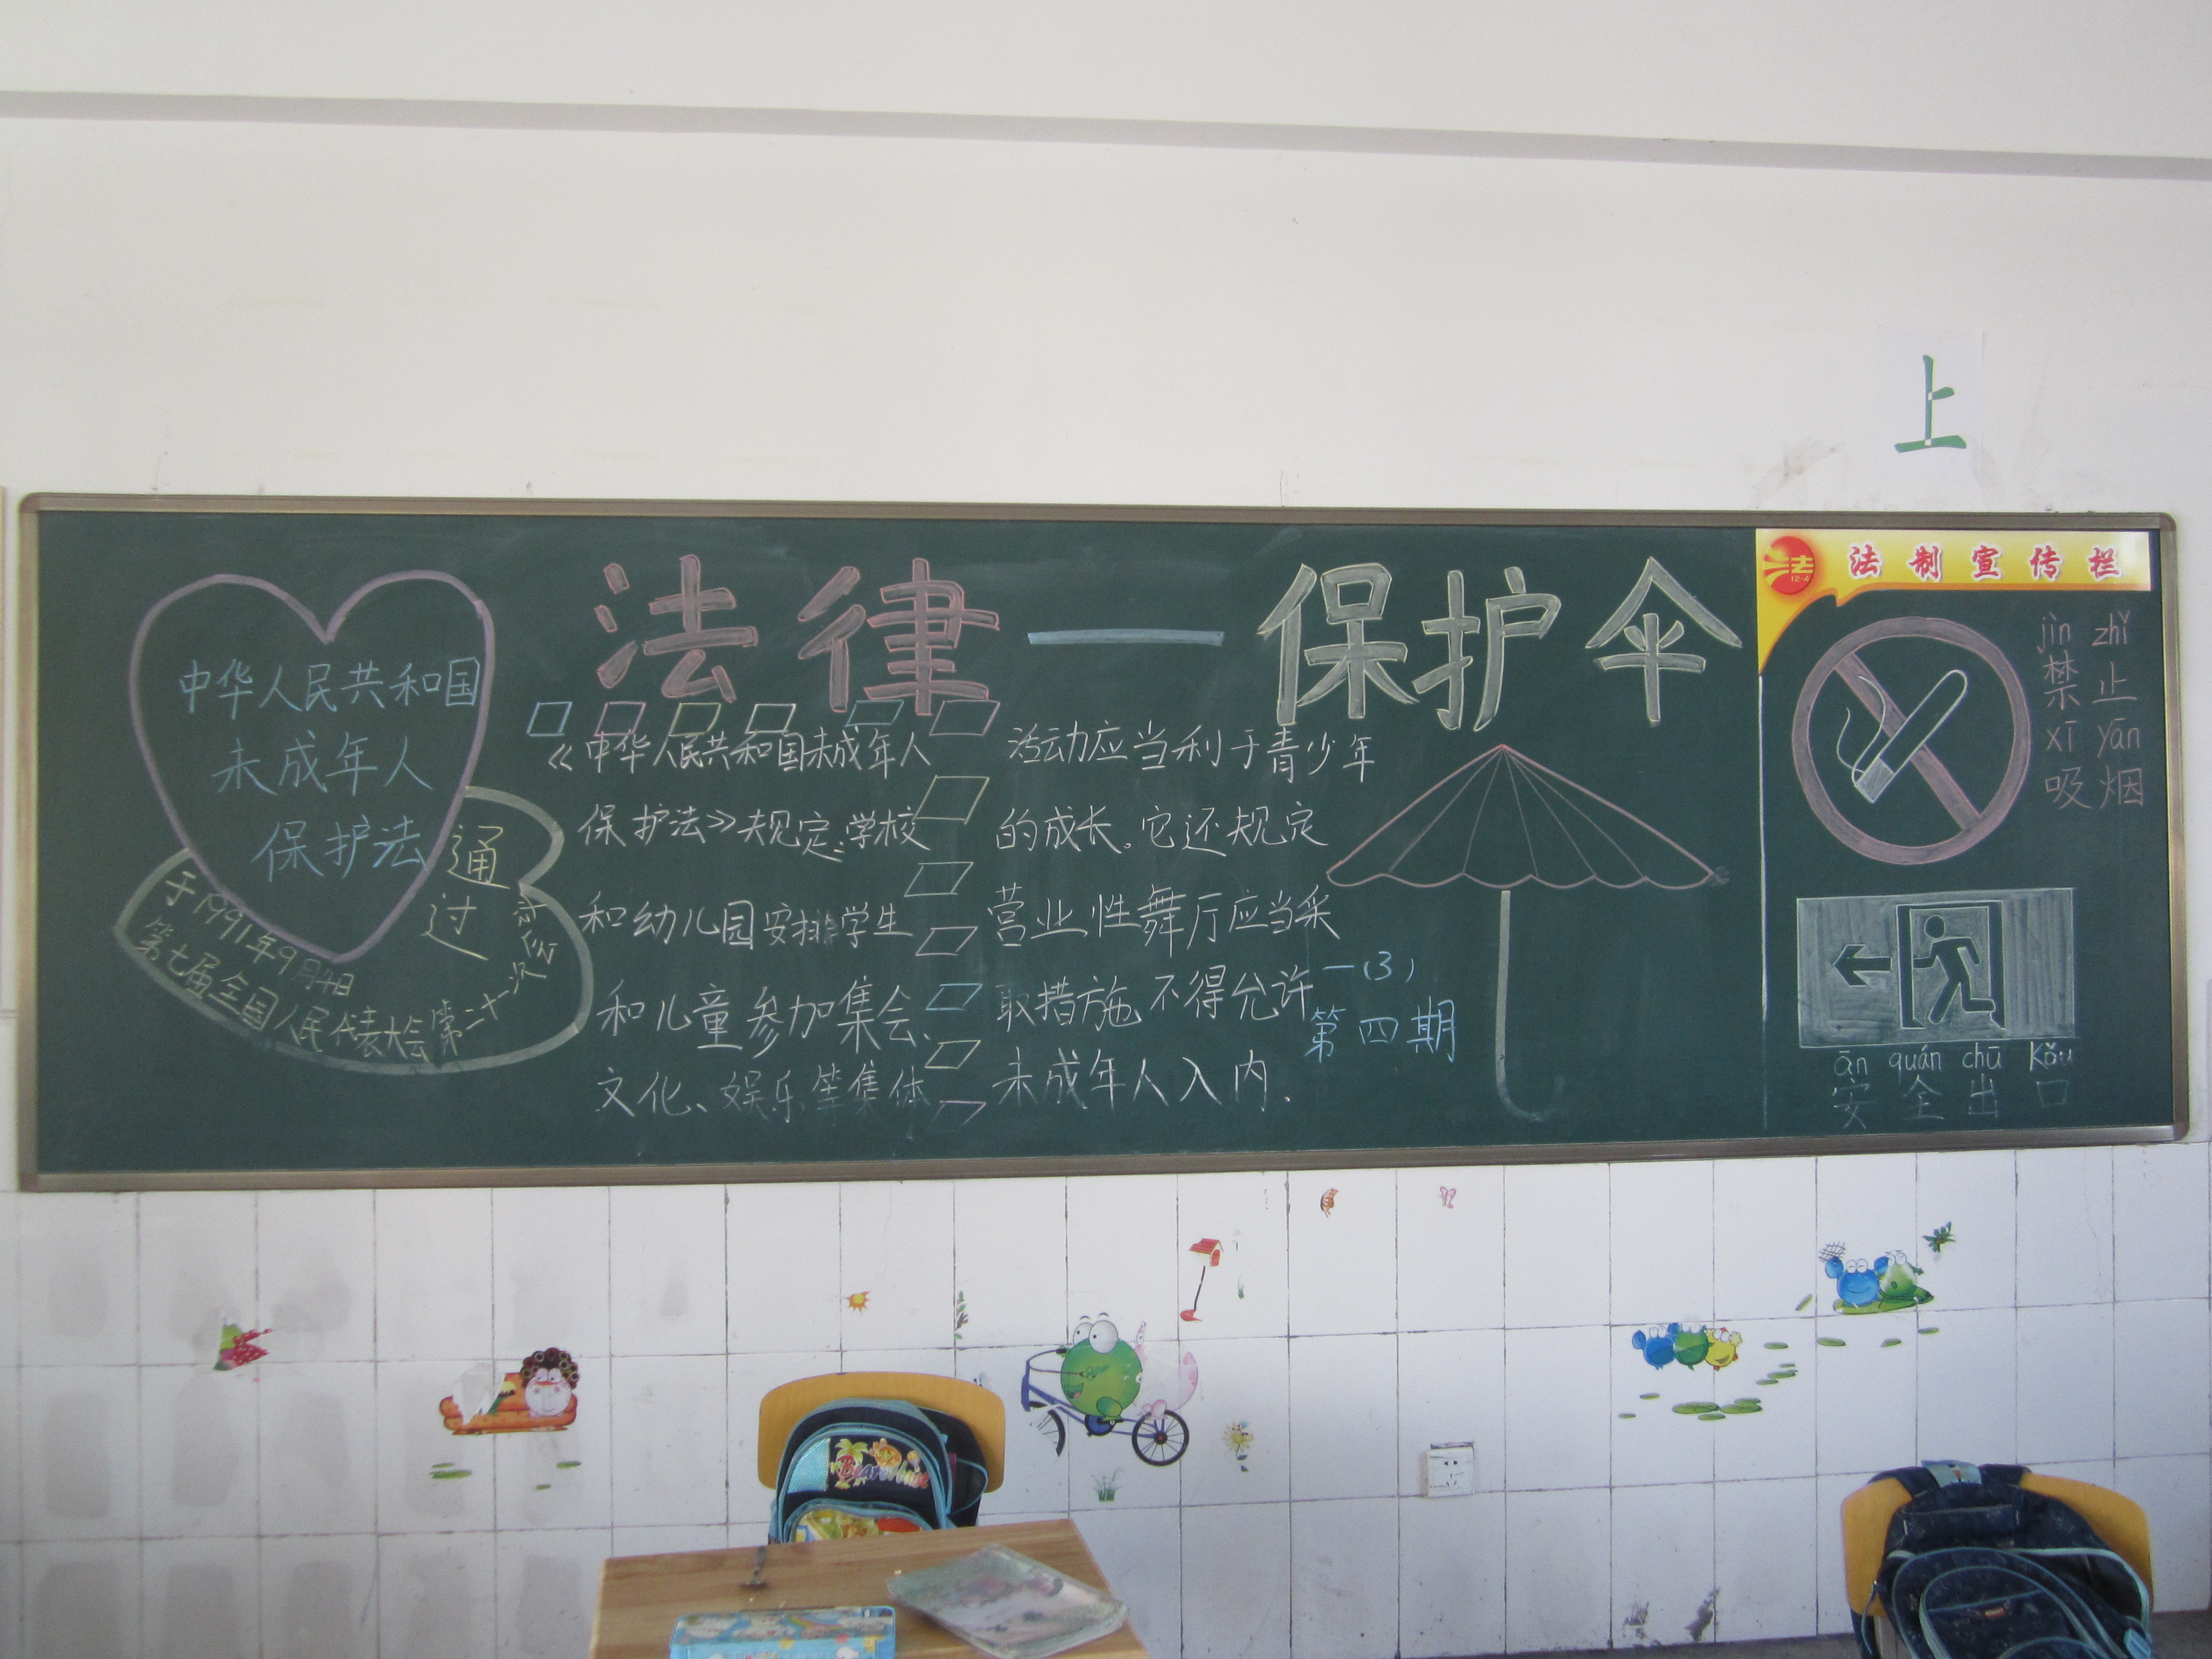 上
法律——保护伞
中华人民共和国
未成年人
保护法
通
过
于1991年9月4日
第七届全国人民代表大会第二十一次会
《中华人民共和国未成年人
保护法》规定:学校
和幼儿园安排学生
和儿童参加集会、
文化、娱乐等集体
活动应当利于青少年
的成长。它还规定
营业性舞厅应当采
取措施不得允许
未成年人入内.
一(3)
第四期
法 12·4
法制宣传栏
jìn zhǐ
禁止
xī yān
吸烟
ān quán chū kǒu
安全出口